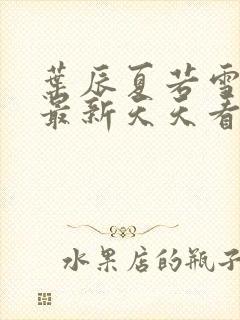 葉辰夏若雪
最新天天看
水果店的瓶子